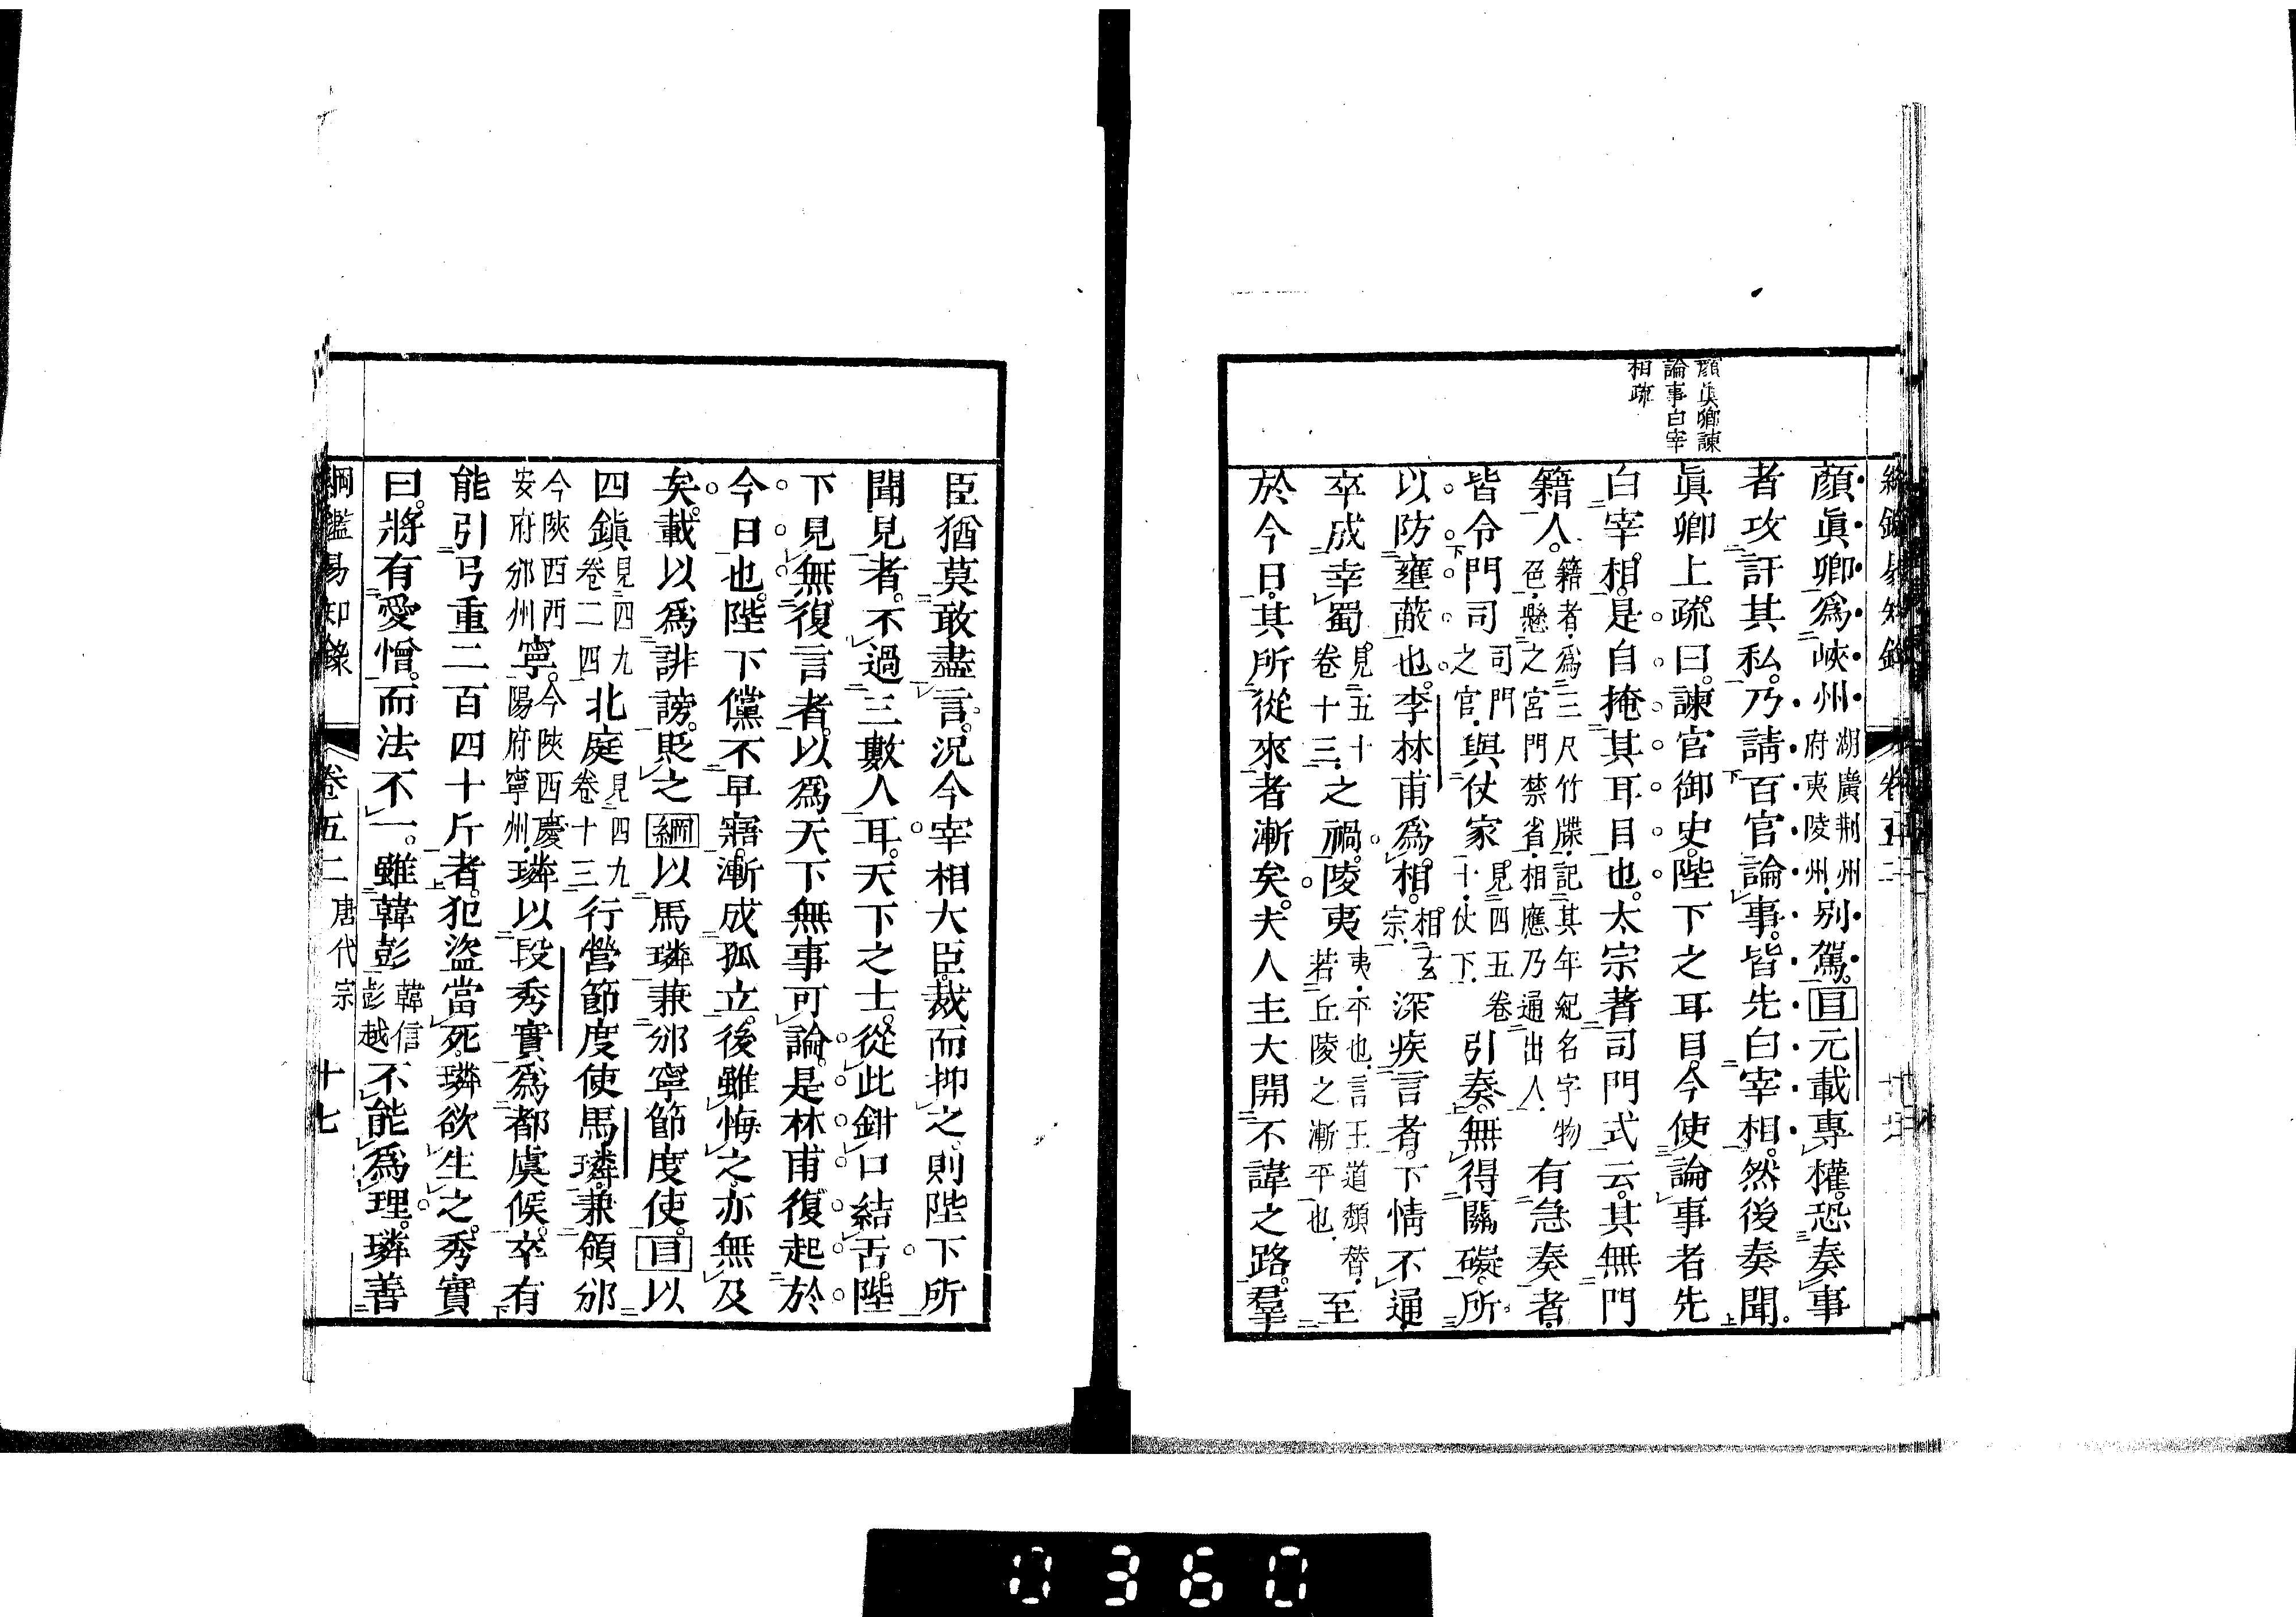 顏眞卿諫
論事白宰
相疏
顏眞卿爲峽州湖廣荆州府夷陵州別駕。目元載專權。恐奏事
者攻訐其私。乃請百官論事。皆先白宰相。然後奏聞。
眞卿上疏曰。諫官御史。陛下之耳目。今使論事者先
白宰相。是自掩其耳目也。太宗著司門式云。其無門
籍人。籍者爲三尺竹牒記其年紀名字物色懸之宮門禁省相應乃通出入有急奏者。
皆令門司司門之官與仗家見四五卷十仗下引奏。無得關礙。所
以防壅蔽也。李林甫爲相。相玄宗深疾言者。下情不通
卒成幸蜀見五十卷十三之禍。陵夷夷平也言王道頹替若丘陵之漸平也至
於今日。其所從來者漸矣。夫人主大開不諱之路。羣
臣猶莫敢盡言。況今宰相大臣。裁而抑之。則陛下所
聞見者。不過三數人耳。天下之士。從此鉗口結舌。陛
下見無復言者。以爲天下無事可論。是林甫復起於
今日也。陛下儻不早寤。漸成孤立。後雖悔之。亦無及
矣。載以爲誹謗。貶之綱以馬璘兼邠寧節度使。目以
四鎭見四九卷二四北庭見四九卷十三行營節度使馬璘。兼領邠
今陝西西安府邠州寧。今陝西慶陽府寧州璘以段秀實爲都虞候。卒有
能引弓重二百四十斤者。犯盜當死。璘欲生之。秀實
曰。將有愛憎。而法不一。雖韓彭韓信彭越不能爲理。璘善
綱鑑易知錄 卷五二 唐代宗 十七
0360